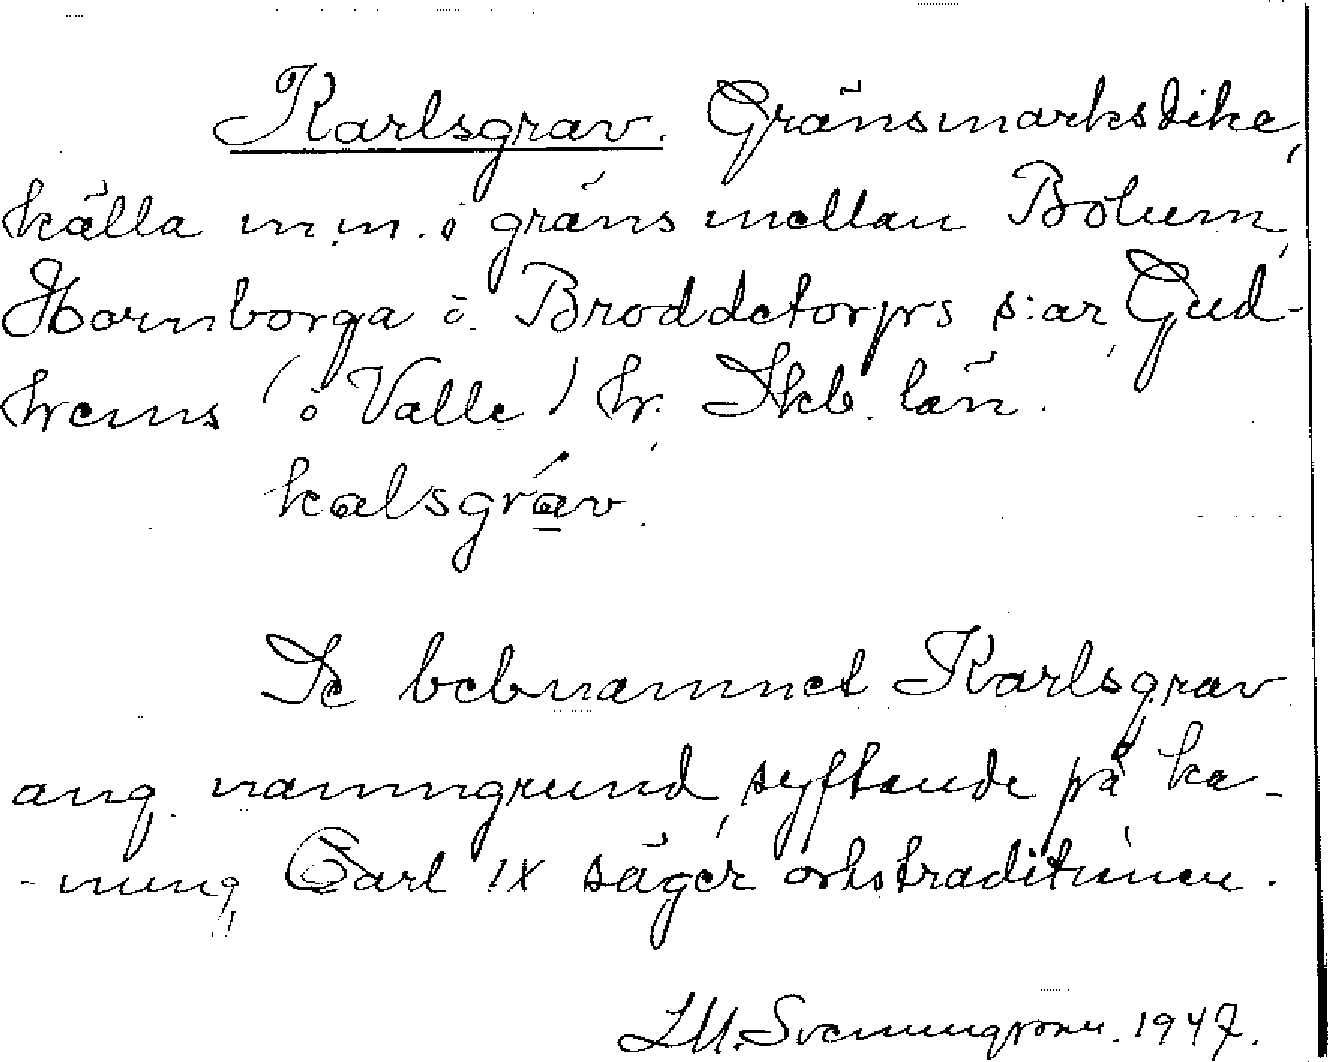 Karlsgrav. Gränsmarksdike,
källa m.m. i gräns mellan Bolum,
Hornborga o. Broddetorps s:ar, Gud-
hems (o Valle) hr. Skb. län.
kalsgráv.
Se bebnamnet Karlsgrav
ang. namngrund, syftande på ko-
-nung Carl IX säger ortstraditionen.
LM. Svenungsson. 1947.